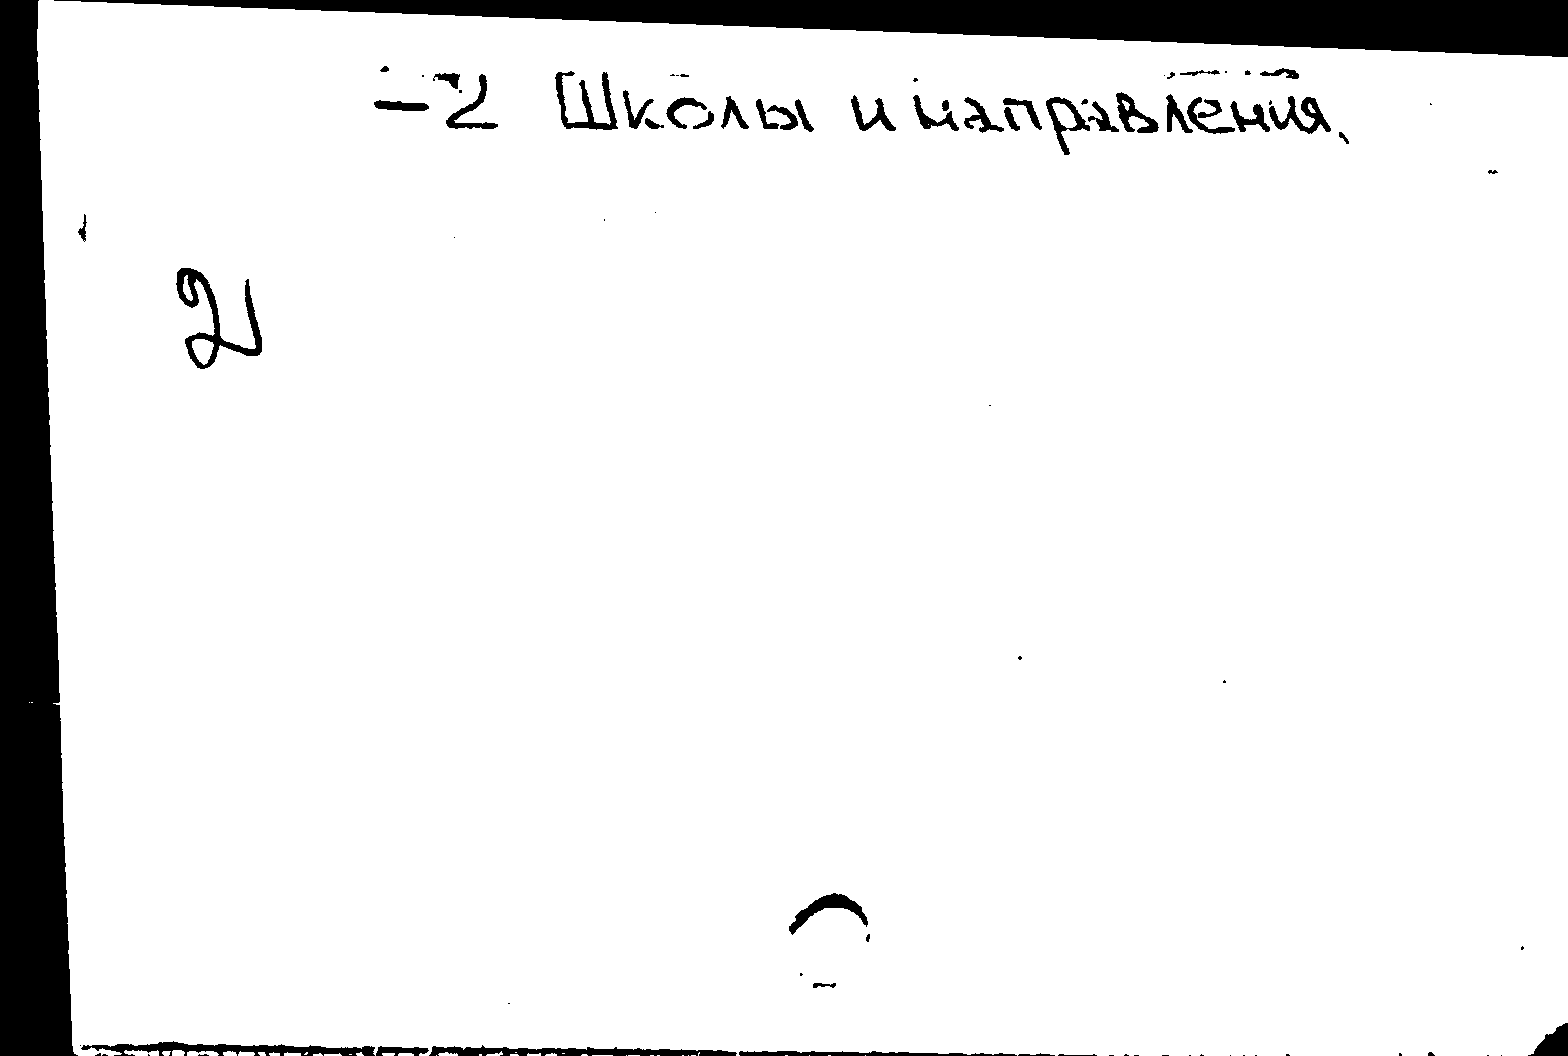 -2 Школы и направления.
2